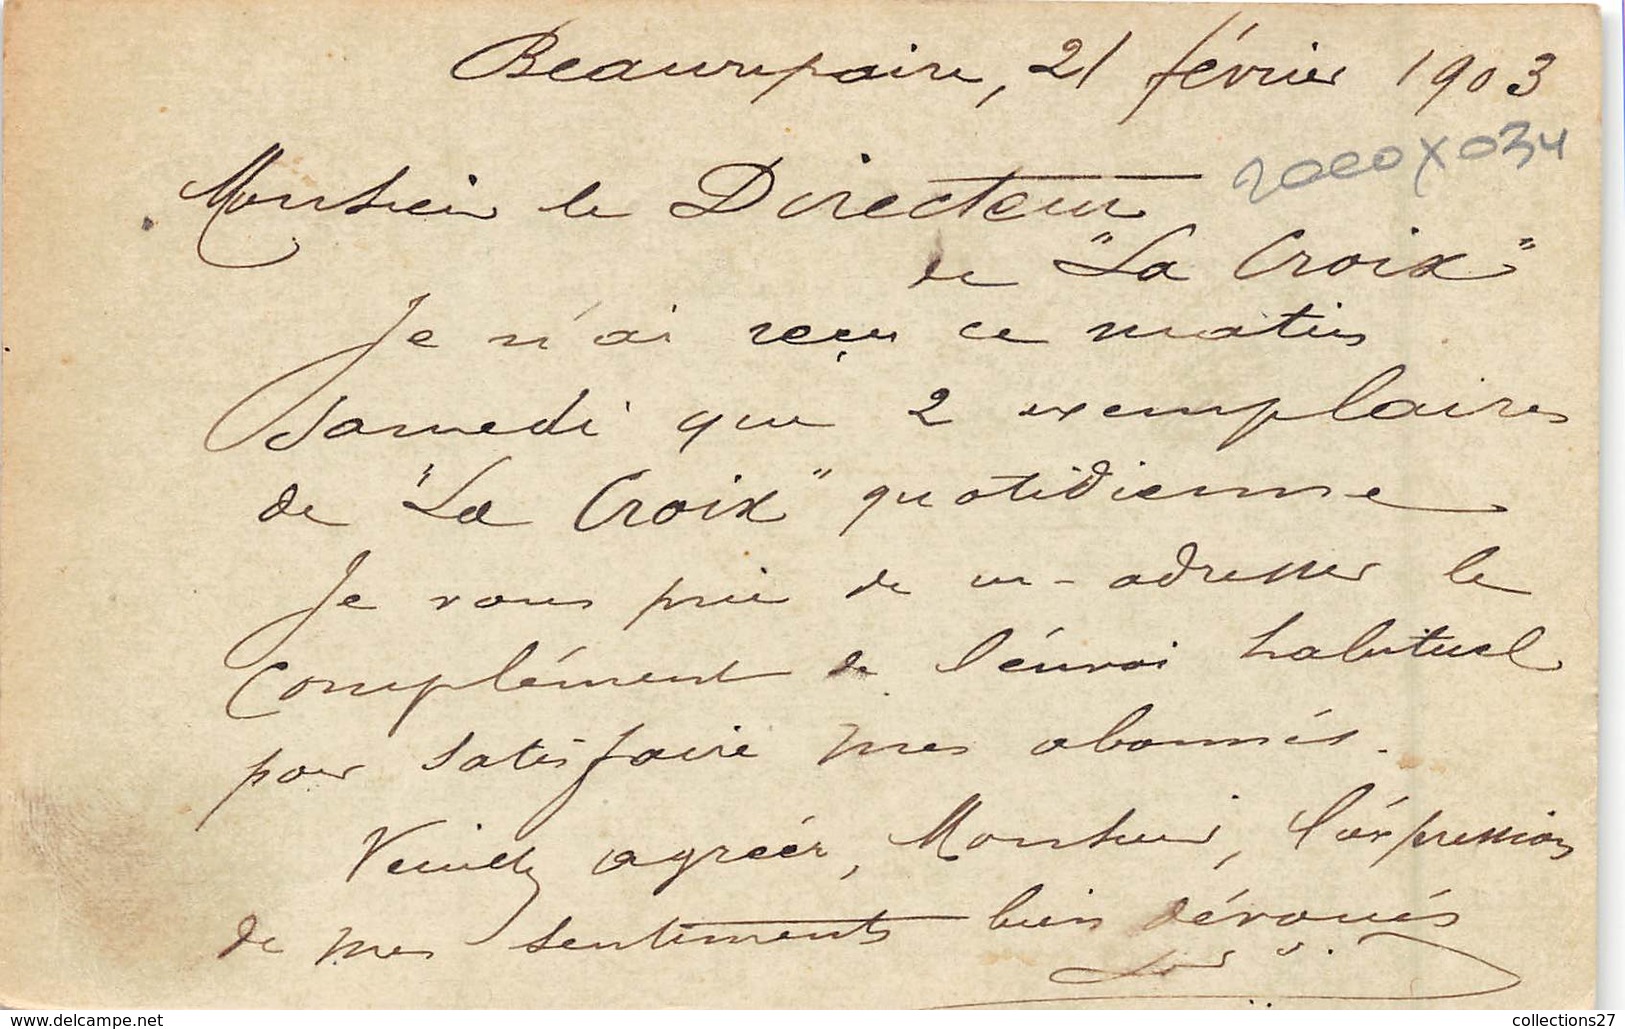 Beaurepaire, 21 février 1903
2000 X 034
Monsieur le Directeur
de "La Croix"
Je n'ai reçu ce matin
samedi que 2 exemplaires
de "La Croix" quotidienne
Je vous prie de m'adresser le
complément de l'envoi habituel
pour satisfaire mes abonnés.
Veuillez agréer, Monsieur, l'expression
de mes sentiments bien dévoués
www.delcampe.net
collections27